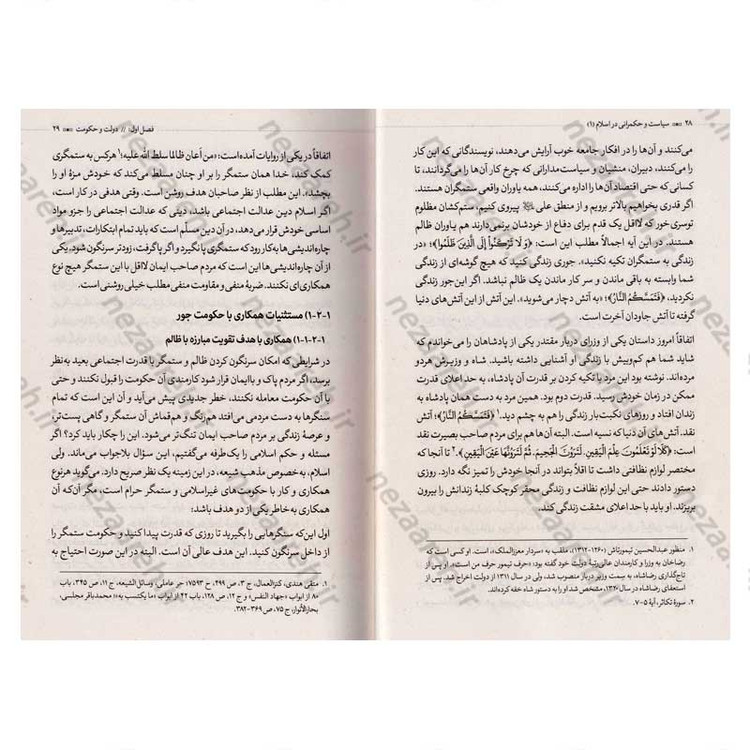 ۲۸ سیاست و حکمرانی در اسلام (۱)
می‌کنند و آن‌ها را در افکار جامعه خوب آرایش می‌دهند، نویسندگانی که این کار
را می‌کنند، دبیران، منشیان و سیاست‌مدارانی که چرخ کار آن‌ها را می‌گردانند، تا
کسانی که حتی اقتصاد آن‌ها را اداره می‌کنند، همه یاوران واقعی ستمگران هستند.
اگر قدری بخواهیم بالاتر برویم و از منطق علی پیروی کنیم، ستم‌کشان مظلوم
توسری‌خور که لااقل یک قدم برای دفاع از خودشان برنمی‌دارند هم یاوران ظالم
هستند. در این آیه اجمالاً مطلب این است: ﴿وَ لا تَرْکَنُوا إِلَی الَّذِینَ ظَلَمُوا﴾؛ «در
زندگی به ستمگران تکیه نکنید». جوری زندگی کنید که هیچ گوشه‌ای از زندگی
شما وابسته به باقی ماندن و سر کار ماندن یک ظالم نباشد. اگر این‌جور زندگی
نکردید، ﴿فَتَمَسَّکُمُ النَّارُ﴾؛ «به آتش دچار می‌شوید». این از این آتش‌های دنیا
گرفته تا آتش جاودان آخرت است.
اتفاقاً امروز داستان یکی از وزرای دربار مقتدر یکی از پادشاهان را می‌خواندم که
شاید شما هم کم‌وبیش با زندگی او آشنایی داشته باشید. شاه و وزیرش هردو
مرده‌اند. نوشته بود این مرد با تکیه کردن بر قدرت آن پادشاه، به حد اعلای قدرت
ممکن در زمان خودش رسید. قدرت دوم بود. همین مرد به دست همان پادشاه به
زندان افتاد و روزهای نکبت‌بار زندگی را هم به چشم دید.۱ ﴿فَتَمَسَّکُمُ النَّارُ﴾؛ آتش
نقد. آتش‌های آن دنیا که نسیه است. البته آن‌ها هم برای مردم صاحب بصیرت نقد
است: ﴿کَلَّا لَوْ تَعْلَمُونَ عِلْمَ الْیَقِینِ. لَتَرَوُنَّ الْجَحِیمَ. ثُمَّ لَتَرَوُنَّهَا عَیْنَ الْیَقِینِ﴾.۲ تا آنجا که
مختصر لوازم نظافتی داشت تا اقلاً بتواند در آنجا خودش را تمیز نگه دارد. روزی
دستور دادند حتی این لوازم نظافت و زندگی محقر کوچک کلبهٔ زندانش را بیرون
بریزند. او باید با حد اعلای مشقت زندگی کند.
۱. منظور عبدالحسین تیمورتاش (۱۲۶۰-۱۳۱۲)، ملقب به «سردار معززالملک» است. او کسی است که
رضاخان به وزرا و کارمندان عالی‌رتبهٔ دولت خود گفته بود: «حرف تیمور حرف من است». او پس از
تاج‌گذاری رضاشاه، به سمت وزیر دربار منصوب شد، ولی در سال ۱۳۱۱ از دولت اخراج شد. پس از
استعفای رضاشاه در سال ۱۳۲۰، مشخص شد او را به دستور شاه خفه کرده‌اند.
۲. سورهٔ تکاثر، آیهٔ ۵-۷.
فصل اول: // دولت و حکومت ۲۹
اتفاقاً در یکی از روایات آمده است: «من أعان ظالما سلط الله علیه؛۱ هرکس به ستمگری
کمک کند، خدا همان ستمگر را بر او چنان مسلط می‌کند که خودش مزهٔ او را
بچشد». این مطلب از نظر صاحبان هدف روشن است. وقتی هدفی در کار است،
اگر اسلام دین عدالت اجتماعی باشد، دینی که عدالت اجتماعی را جزو مواد
اساسی خودش قرار می‌دهد، در آن دین مسلّم است که باید تمام ابتکارات، تدبیرها و
چاره‌اندیشی‌ها به کار رود که ستمگری پا نگیرد و اگر پا گرفت، زودتر سرنگون شود. یکی
از آن چاره‌اندیشی‌ها این است که مردم صاحب ایمان لااقل با این ستمگر هیچ نوع
همکاری‌ای نکنند. ضربهٔ منفی و مقاومت منفی مطلب خیلی روشنی است.
۱-۲-۱) مستثنیات همکاری با حکومت جور
۱-۲-۱-۱) همکاری با هدف تقویت مبارزه با ظالم
در شرایطی که امکان سرنگون کردن ظالم و ستمگر با قدرت اجتماعی بعید به‌نظر
برسد، اگر مردم پاک و باایمان قرار شود کارمندی آن حکومت را قبول نکنند و حتی
با آن حکومت معامله نکنند، خطر جدیدی پیش می‌آید و آن این است که تمام
سنگرها به دست مردمی می‌افتد هم‌رنگ و هم‌قماش آن ستمگر و گاهی پست‌تر،
و عرصهٔ زندگی بر مردم صاحب ایمان تنگ‌تر می‌شود. این را چکار باید کرد؟ اگر
مسئله و حکم اسلامی را یک‌طرفه می‌گفتیم، این سؤال بلاجواب می‌ماند. ولی
اسلام، به خصوص مذهب شیعه، در این زمینه یک نظر صریح دارد. می‌گوید هرنوع
همکاری و کار با حکومت‌های غیراسلامی و ستمگر حرام است، مگر آن‌که آن
همکاری به خاطر یکی از دو هدف باشد:
اول این‌که سنگرهایی را بگیرید تا روزی که قدرت پیدا کنید و حکومت ستمگر را
از داخل سرنگون کنید. این هدف عالی آن است. البته در این صورت احتیاج به
۱. متقی هندی، کنزالعمال، ج ۳، ص ۴۹۹، ح ۷۵۹۳؛ حر عاملی، وسائل الشیعه، ج ۱۱، ص ۳۴۵، باب
۸۰ از ابواب «جهاد النفس» و ج ۱۲، ص ۱۲۸، باب ۴۲ از ابواب «ما یکتسب به»؛ محمدباقر مجلسی،
بحارالأنوار، ج ۷۵، ص ۳۶۹-۳۸۲.
nezaareh.ir